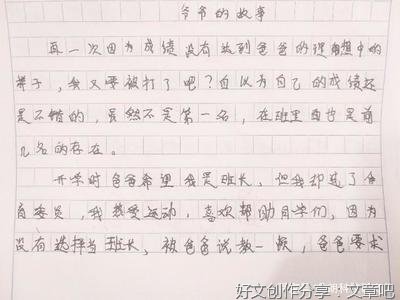 爷爷的故事
再一次因为成绩没有达到爸爸的理想中的
样子，我又要被打了吧？自以为自己的成绩还
是不错的，虽然不是第一名，在班里面也是前
几名的存在。
开学时爸爸希望我是班长，但我却选了体
育委员，我热爱运动，喜欢帮助同学们，因为
没有选择当班长，被爸爸说教一顿，爸爸要求
好文创作分享·文章吧